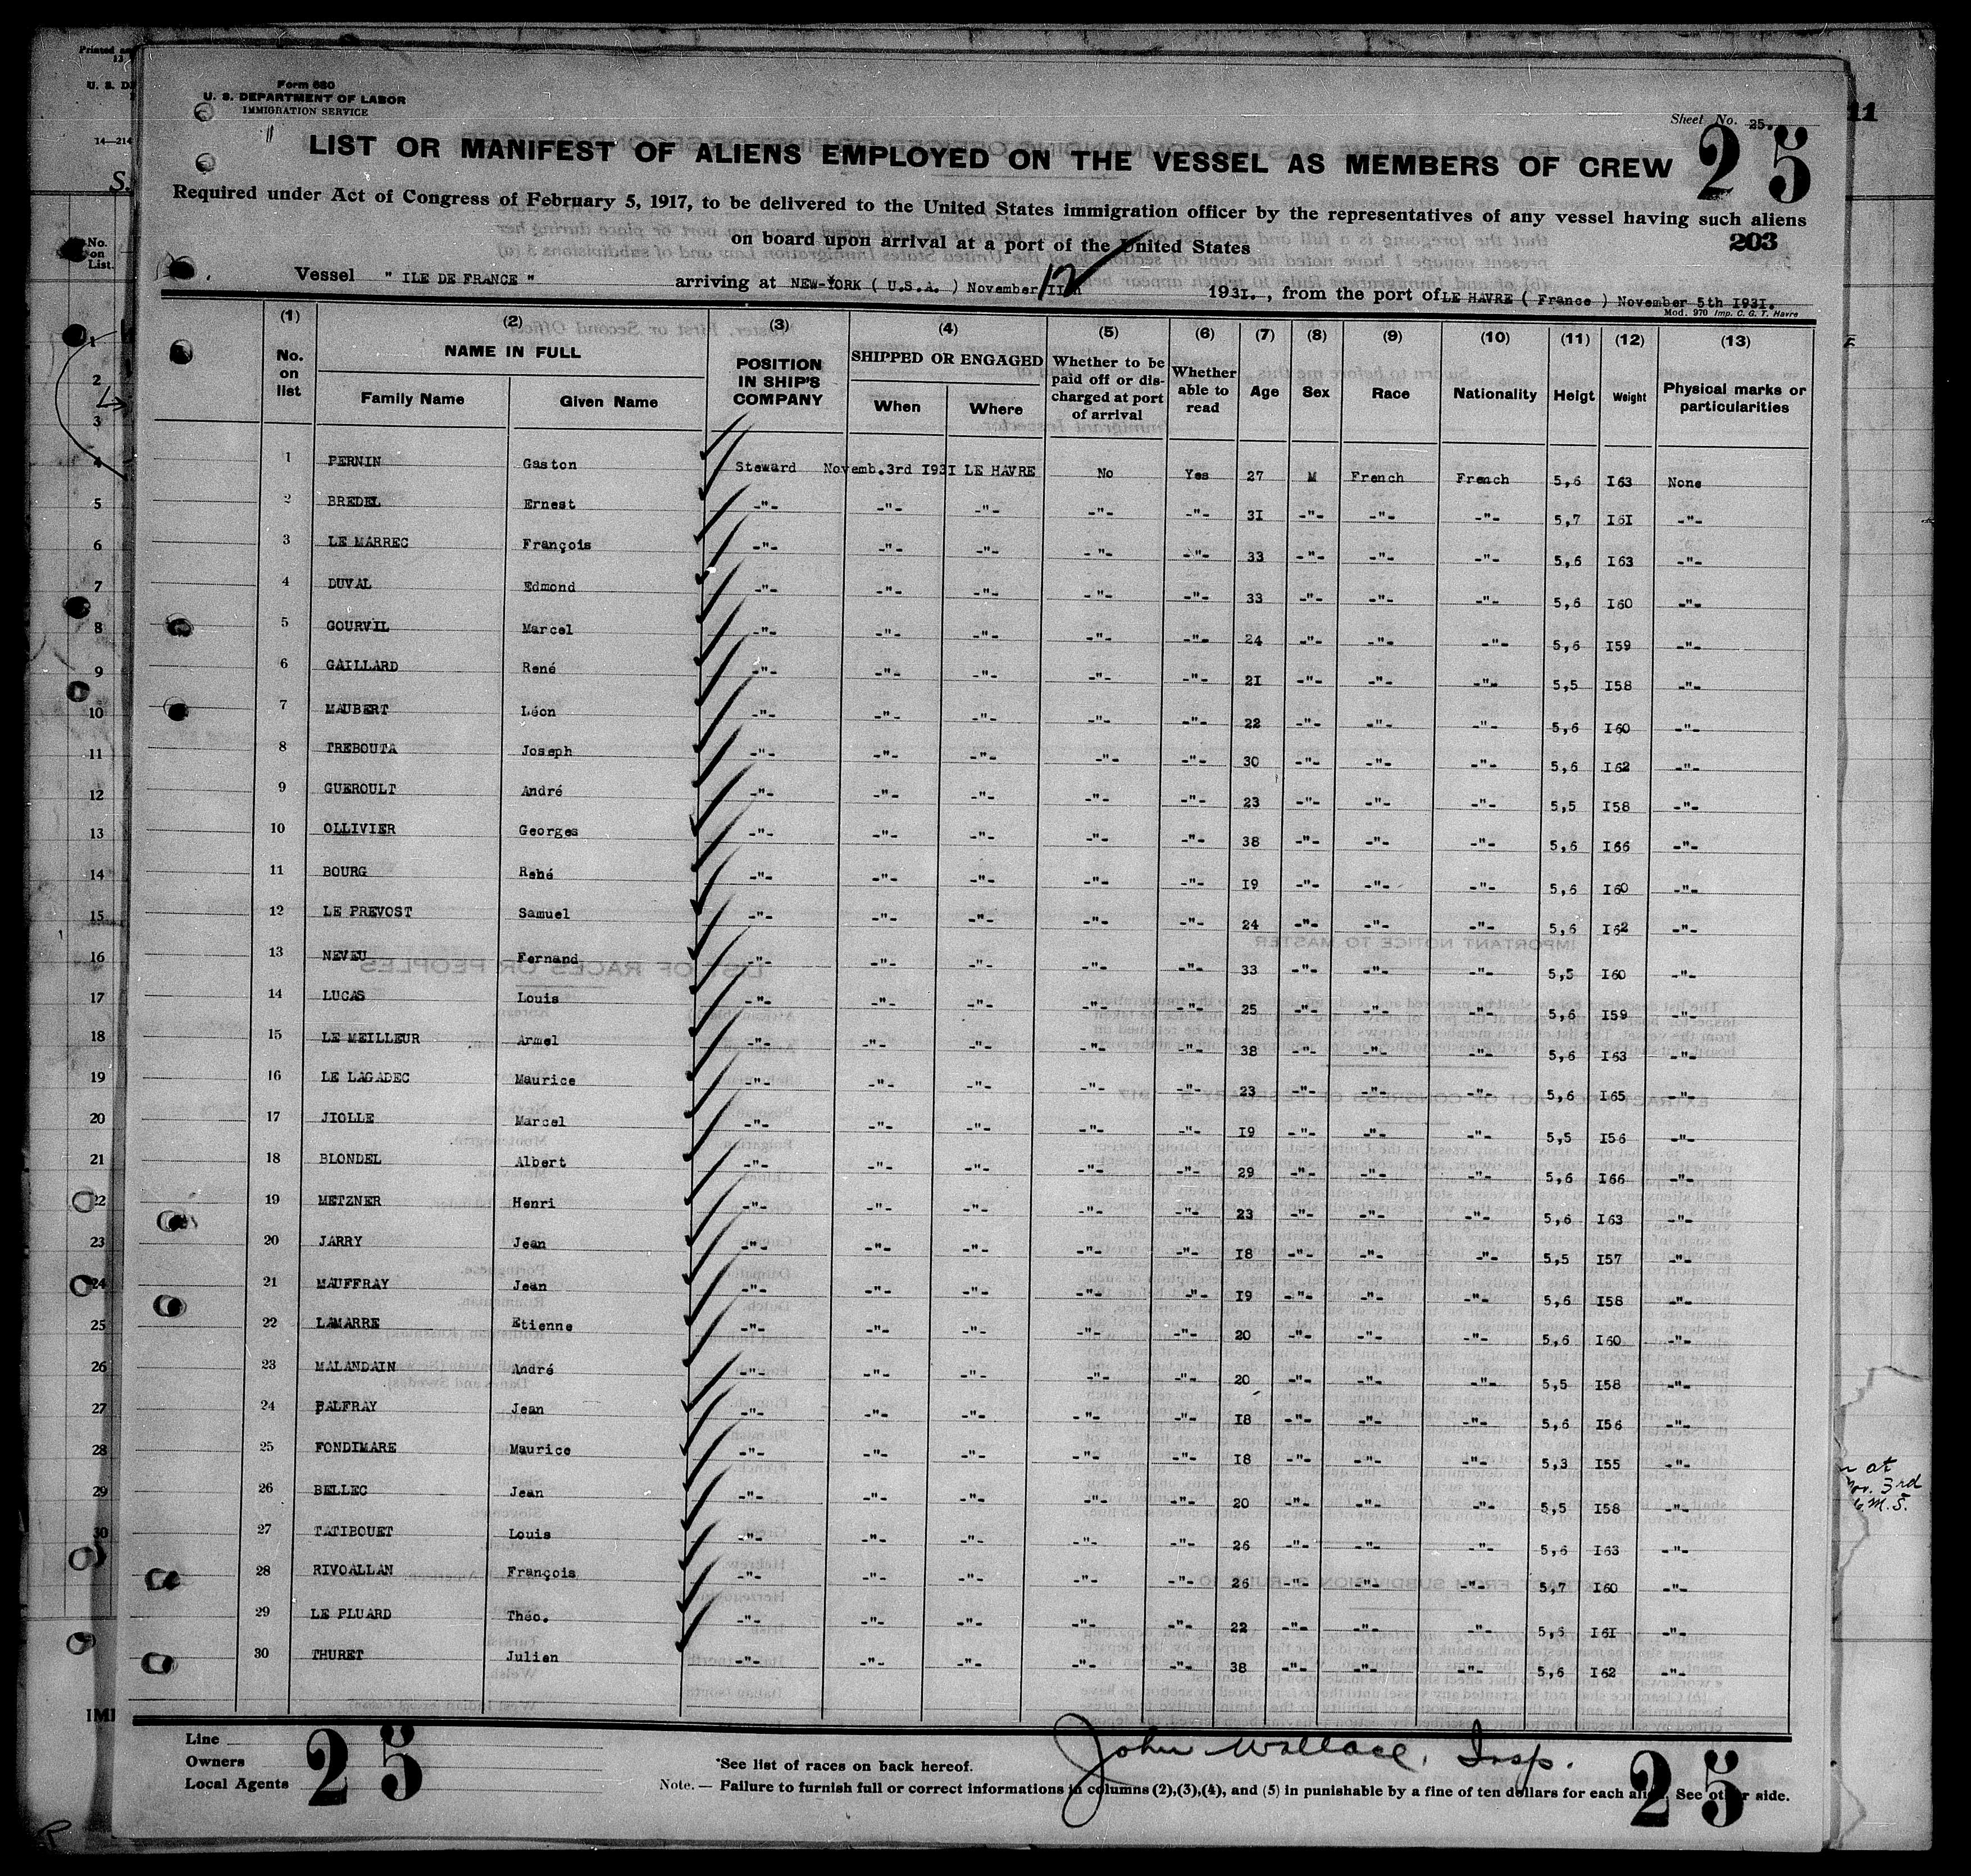 Form 680
U. S. DEPARTMENT OF LABOR
IMMIGRATION SERVICE
Sheet No. 25.
25
LIST OR MANIFEST OF ALIENS EMPLOYED ON THE VESSEL AS MEMBERS OF CREW
Required under Act of Congress of February 5, 1917, to be delivered to the United States immigration officer by the representatives of any vessel having such aliens
on board upon arrival at a port of the United States
203
Vessel " ILE DE FRANCE " arriving at NEW-YORK ( U.S.A. ) November 12 193I. , from the port of LE HAVRE ( France ) November 5th I93I.
Mod. 970 Imp. C. G. T. Havre
(1) (2) (3) (4) (5) (6) (7) (8) (9) (10) (11) (12) (13)
No. on list NAME IN FULL Family Name Given Name POSITION IN SHIP'S COMPANY SHIPPED OR ENGAGED When Where Whether to be paid off or discharged at port of arrival Whether able to read Age Sex Race Nationality Heigt Weight Physical marks or particularities
1 PERNIN Gaston Steward Novemb.3rd I93I LE HAVRE No Yes 27 M French French 5,6 I63 None
2 BREDEL Ernest -"- -"- -"- -"- -"- 3I -"- -"- -"- 5,7 I6I -"-
3 LE MARREC François -"- -"- -"- -"- -"- 33 -"- -"- -"- 5,6 I63 -"-
4 DUVAL Edmond -"- -"- -"- -"- -"- 33 -"- -"- -"- 5,6 I60 -"-
5 GOURVIL Marcel -"- -"- -"- -"- -"- 24 -"- -"- -"- 5,6 I59 -"-
6 GAILLARD René -"- -"- -"- -"- -"- 2I -"- -"- -"- 5,5 I58 -"-
7 MAUBERT Léon -"- -"- -"- -"- -"- 22 -"- -"- -"- 5,6 I60 -"-
8 TREBOUTA Joseph -"- -"- -"- -"- -"- 30 -"- -"- -"- 5,6 I62 -"-
9 GUEROULT André -"- -"- -"- -"- -"- 23 -"- -"- -"- 5,5 I58 -"-
10 OLLIVIER Georges -"- -"- -"- -"- -"- 38 -"- -"- -"- 5,6 I66 -"-
11 BOURG René -"- -"- -"- -"- -"- I9 -"- -"- -"- 5,6 I60 -"-
12 LE PREVOST Samuel -"- -"- -"- -"- -"- 24 -"- -"- -"- 5,6 I62 -"-
13 NEVEU Fernand -"- -"- -"- -"- -"- 33 -"- -"- -"- 5,5 I60 -"-
14 LUCAS Louis -"- -"- -"- -"- -"- 25 -"- -"- -"- 5,6 I59 -"-
15 LE MEILLEUR Armel -"- -"- -"- -"- -"- 38 -"- -"- -"- 5,6 I63 -"-
16 LE LAGADEC Maurice -"- -"- -"- -"- -"- 23 -"- -"- -"- 5,6 I65 -"-
17 JIOLLE Marcel -"- -"- -"- -"- -"- I9 -"- -"- -"- 5,5 I56 -"-
18 BLONDEL Albert -"- -"- -"- -"- -"- 29 -"- -"- -"- 5,6 I66 -"-
19 METZNER Henri -"- -"- -"- -"- -"- 23 -"- -"- -"- 5,6 I63 -"-
20 JARRY Jean -"- -"- -"- -"- -"- I8 -"- -"- -"- 5,5 I57 -"-
21 MAUFFRAY Jean -"- -"- -"- -"- -"- I9 -"- -"- -"- 5,6 I58 -"-
22 LAMARRE Etienne -"- -"- -"- -"- -"- 20 -"- -"- -"- 5,6 I60 -"-
23 MALANDAIN André -"- -"- -"- -"- -"- 20 -"- -"- -"- 5,5 I58 -"-
24 BALFRAY Jean -"- -"- -"- -"- -"- I8 -"- -"- -"- 5,6 I56 -"-
25 FONDIMARE Maurice -"- -"- -"- -"- -"- I8 -"- -"- -"- 5,3 I55 -"-
26 BELLEC Jean -"- -"- -"- -"- -"- 20 -"- -"- -"- 5,5 I58 -"-
27 TATIBOUET Louis -"- -"- -"- -"- -"- 26 -"- -"- -"- 5,6 I63 -"-
28 RIVOALLAN François -"- -"- -"- -"- -"- 26 -"- -"- -"- 5,7 I60 -"-
29 LE PLUARD Théo. -"- -"- -"- -"- -"- 22 -"- -"- -"- 5,6 I6I -"-
30 THURET Julien -"- -"- -"- -"- -"- 38 -"- -"- -"- 5,6 I62 -"-
Line
Owners
Local Agents
25
John Wallace, Insp.
*See list of races on back hereof.
Note. — Failure to furnish full or correct informations in columns (2),(3),(4), and (5) in punishable by a fine of ten dollars for each alien. See other side.
25